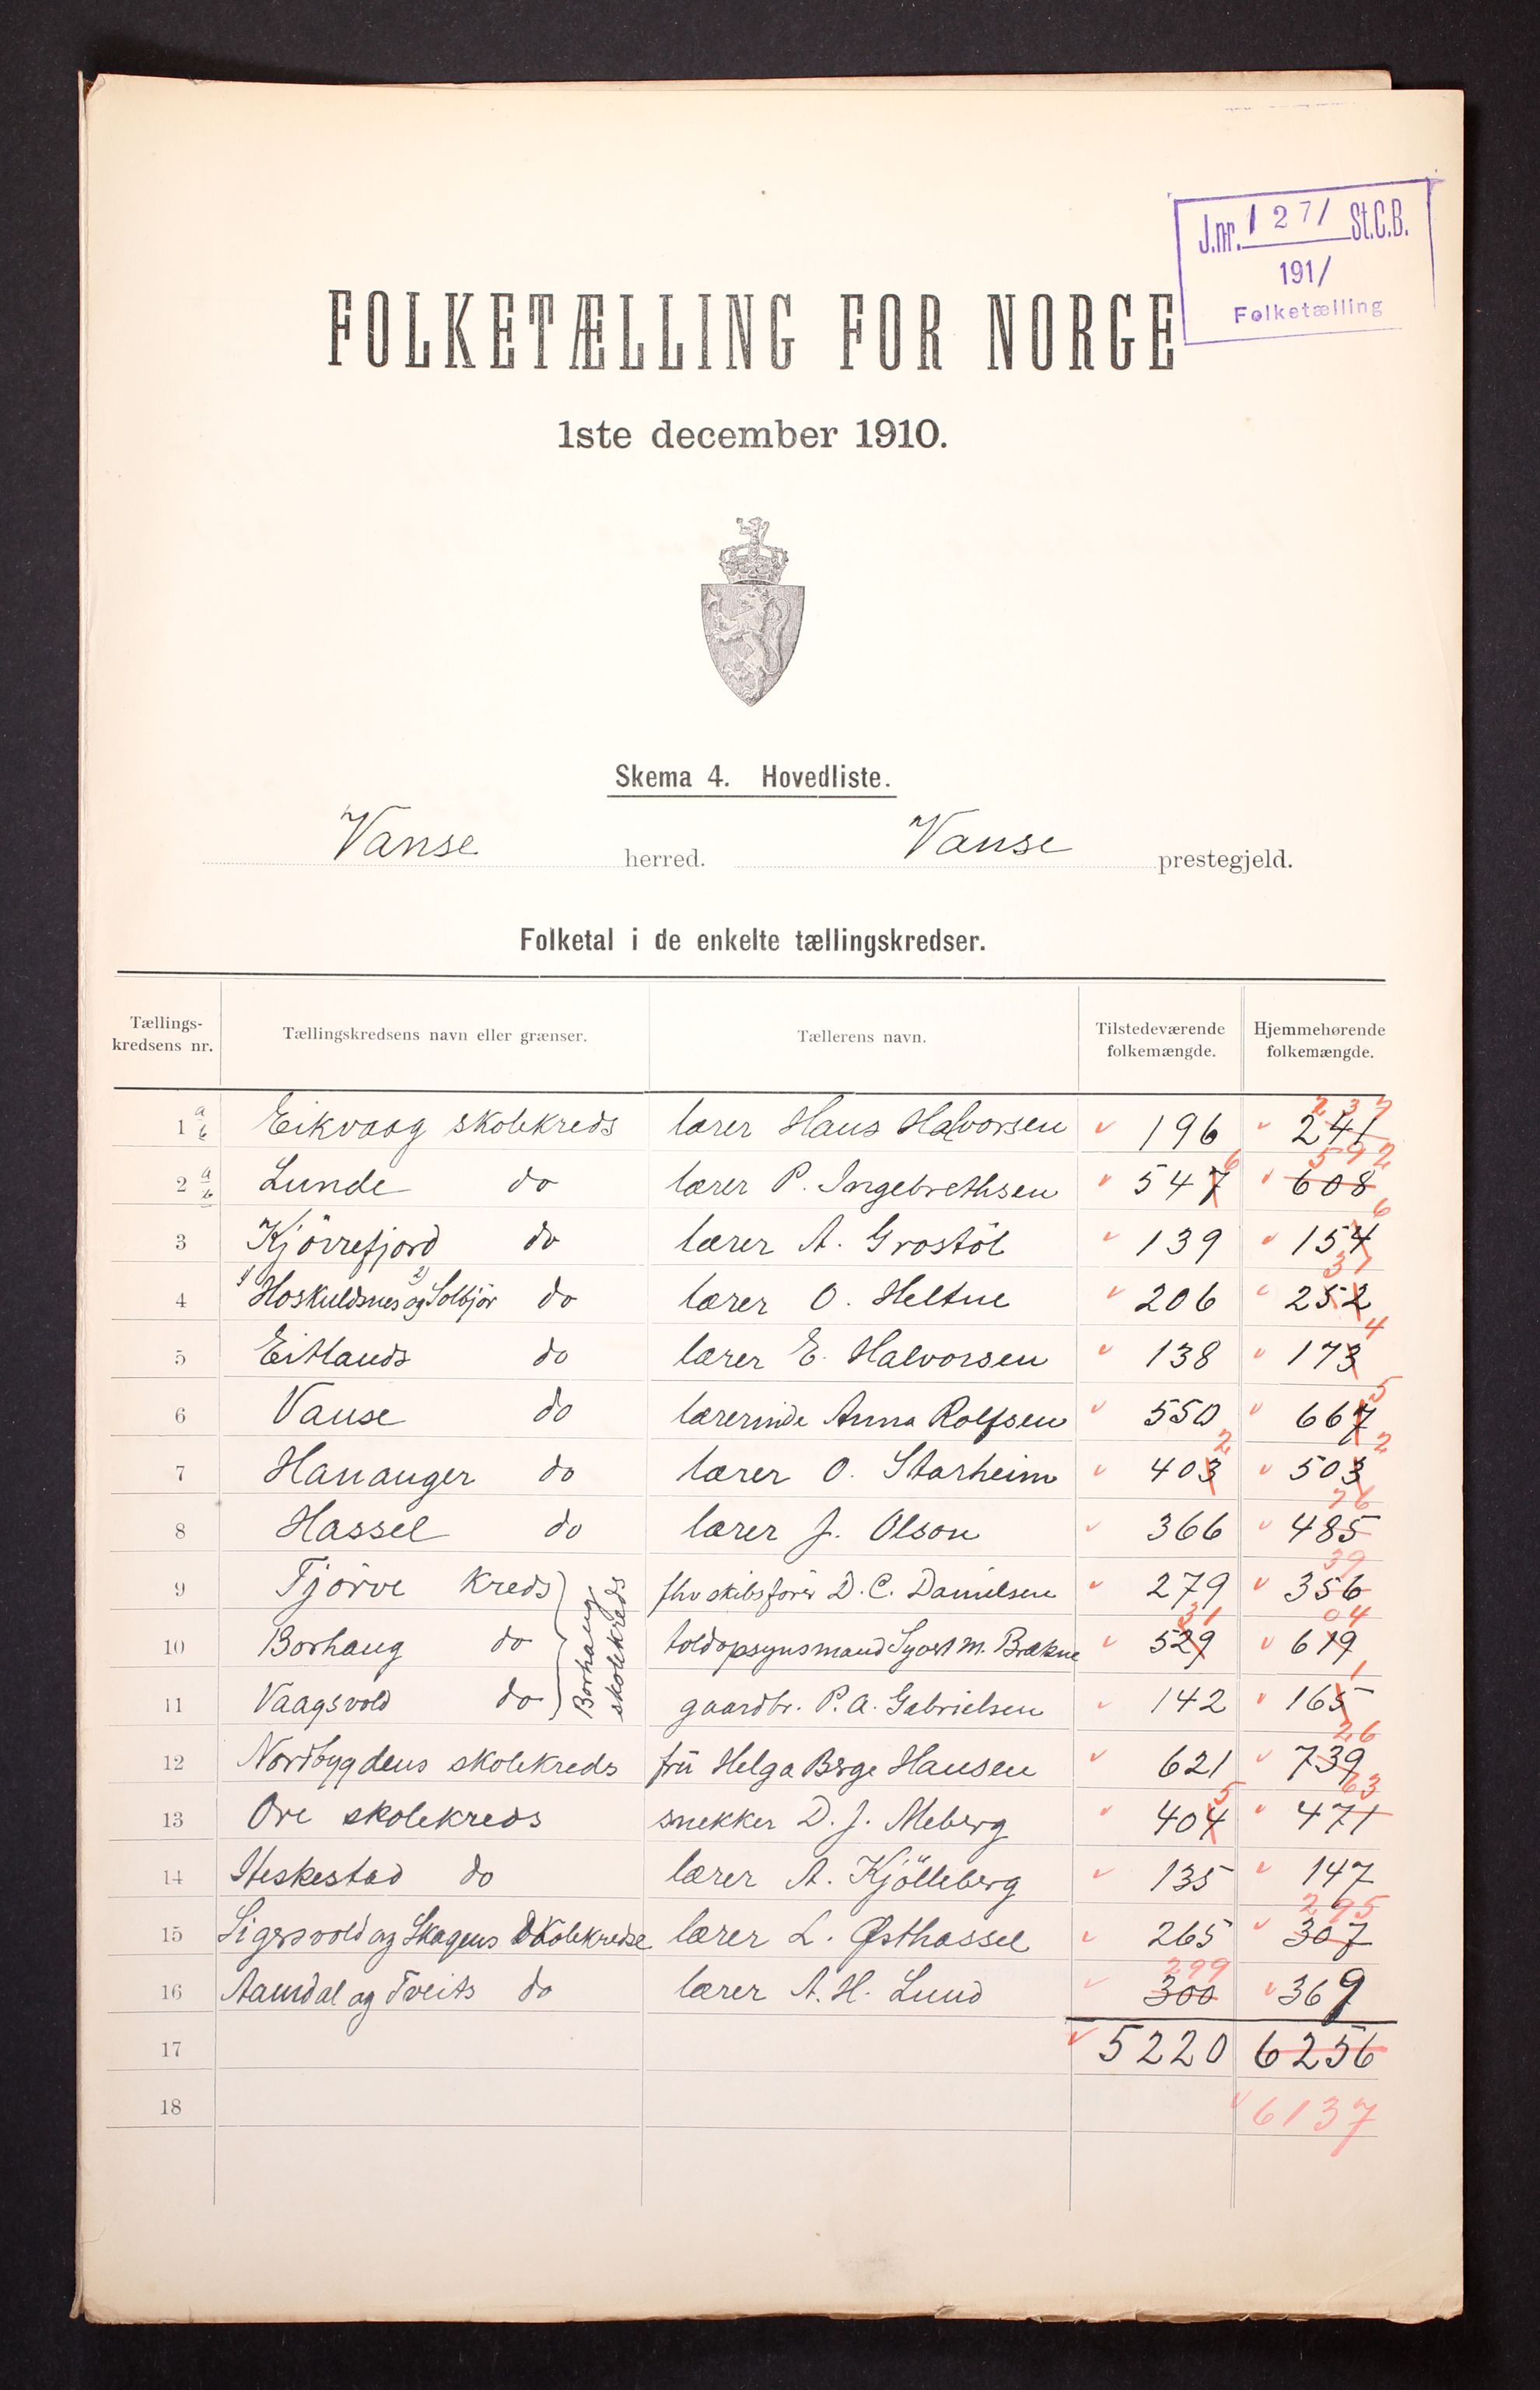 J.nr. 1271 St.C.B.
1911
Folketælling
FOLKETÆLLING FOR NORGE
1ste december 1910.
Skema 4. Hovedliste.
Vanse herred. Vanse prestegjeld.
Folketal i de enkelte tællingskredser.
Tællings-kredsens nr. Tællingskredsens navn eller grænser. Tællerens navn. Tilstedeværende folkemængde. Hjemmehørende folkemængde.
1 a b Eikvaag skolekreds lærer Hans Halvorsen 196 241 237
2 a b Lunde do lærer P. Ingebrethsen 547 6 608 592
3 Kjövrefjord do lærer A. Grostöl 139 154 6
4 1) Hoskuldsnes og 2) Solbjör do lærer O. Heltne 206 252 31
5 Eitlands do lærer E. Halvorsen 138 173 4
6 Vanse do lærerinde Anna Rolfsen 550 667 5
7 Hananger do lærer O. Starheim 403 2 503 2
8 Hassel do lærer J. Olson 366 485 76
9 Tjörve kreds fhv skibsförer D. C. Danielsen 279 356 39
10 Borhaug do toldopsynsmand Syvert M. Brekne 529 31 619 04
11 Vaagsvold do gaardbr. P. A. Gabrielsen 142 165 1
Borhaug skolekreds
12 Nordbygdens skolekreds frü Helga Berge Hansen 621 739 26
13 Ore skolekreds snekker D. J. Meberg 404 5 471 63
14 Heskestad do lærer A. Kjölleberg 135 147
15 Sigersvold og Skagens skolekredse lærer L. Østhassel 265 307 295
16 Aamdal og Tveits do lærer A. H. Lund 300 299 369
17 5220 6256
18 6137